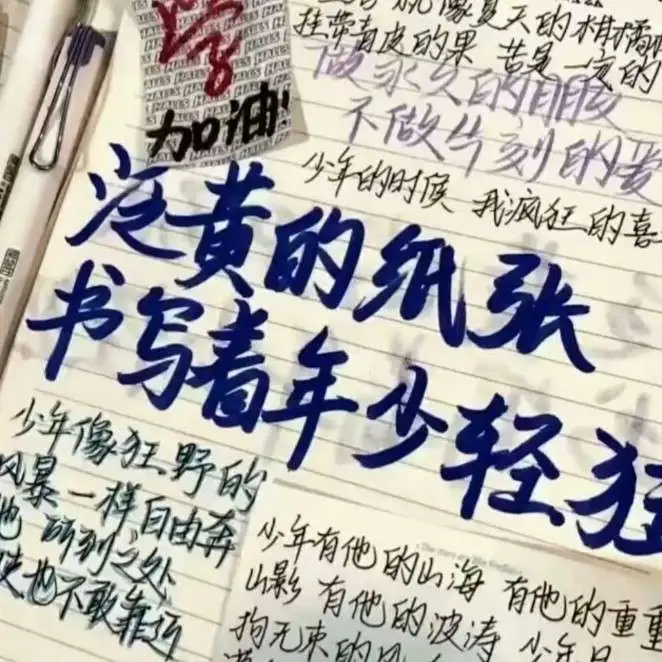 加油!
HALLS
就像夏天的柑橘
挂带青皮的果 苦是一定的
做永久的朋友
不做片刻的
少年的时候 我疯狂的喜
泛黄的纸张
书写着年少轻狂
少年像狂野的
风暴一样自由奔
他所到之处
也不敢靠近
少年有他的山海 有他的重重
山影 有他的波涛 少年
拘无束的风